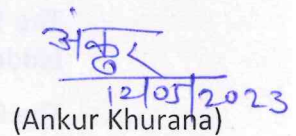 अंकुर
12/05/2023
(Ankur Khurana)